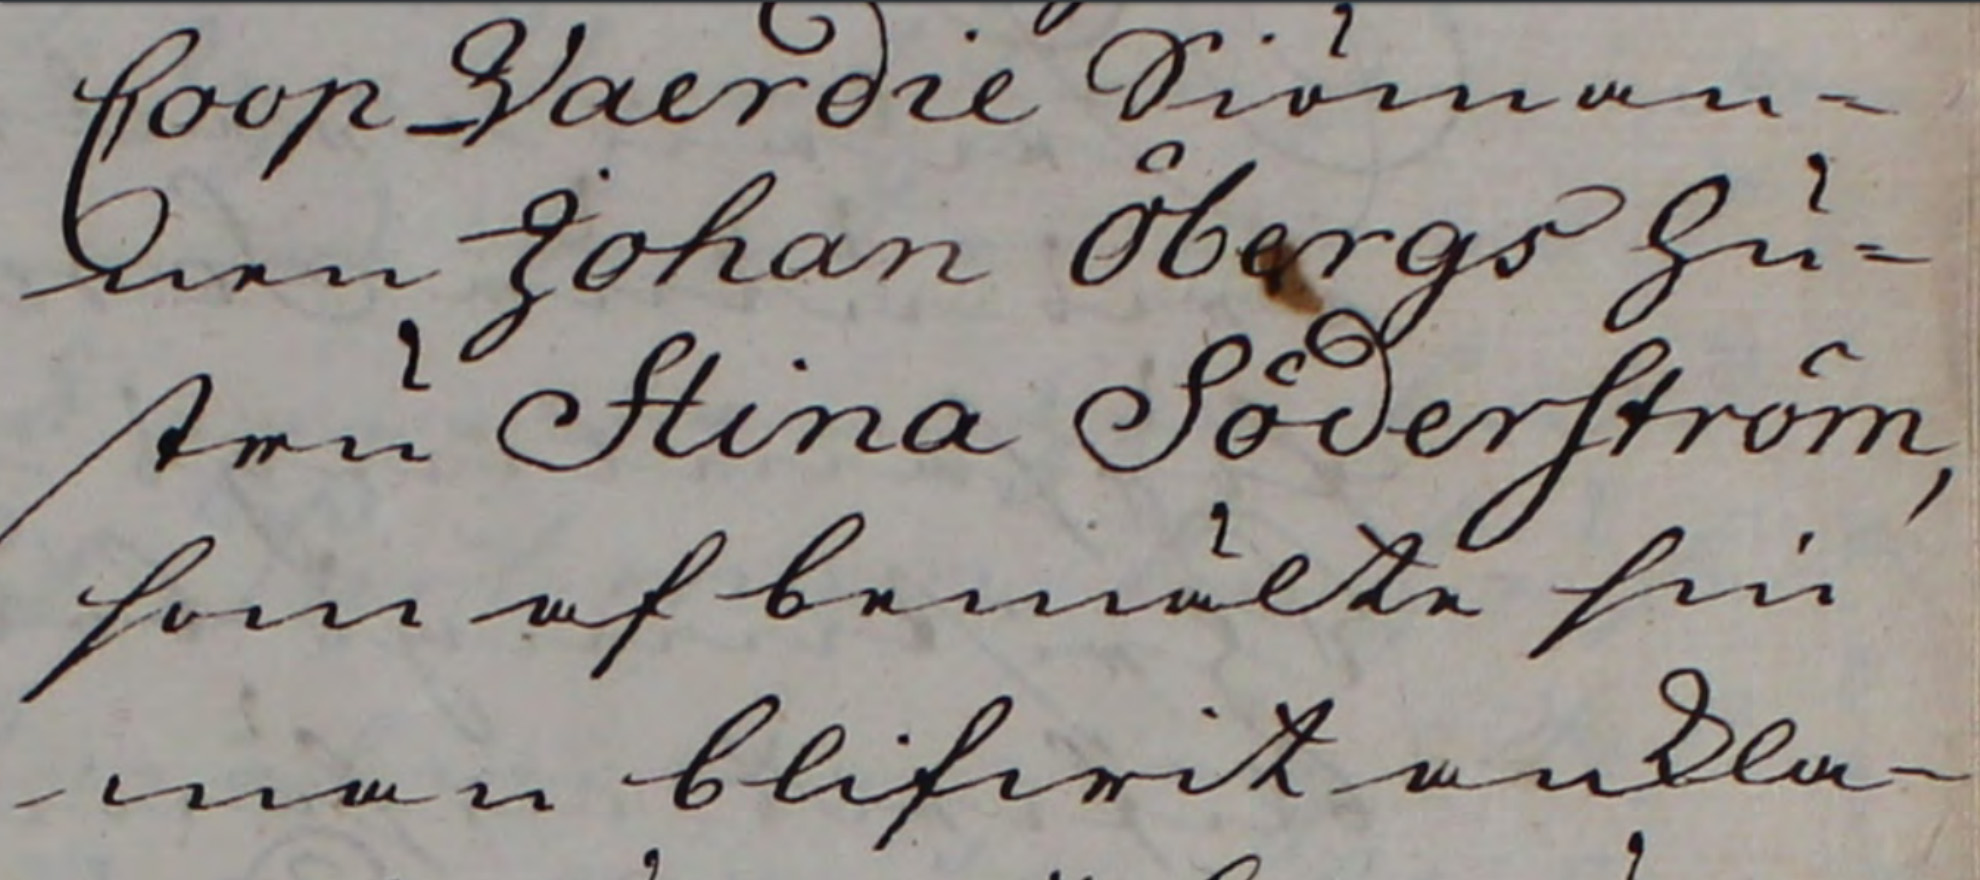 Coop-Vaerdie Siöman-
nen Johan Öbergs Hu-
stru Stina Söderström,
som af bemälte sin
man blifwit ankla-